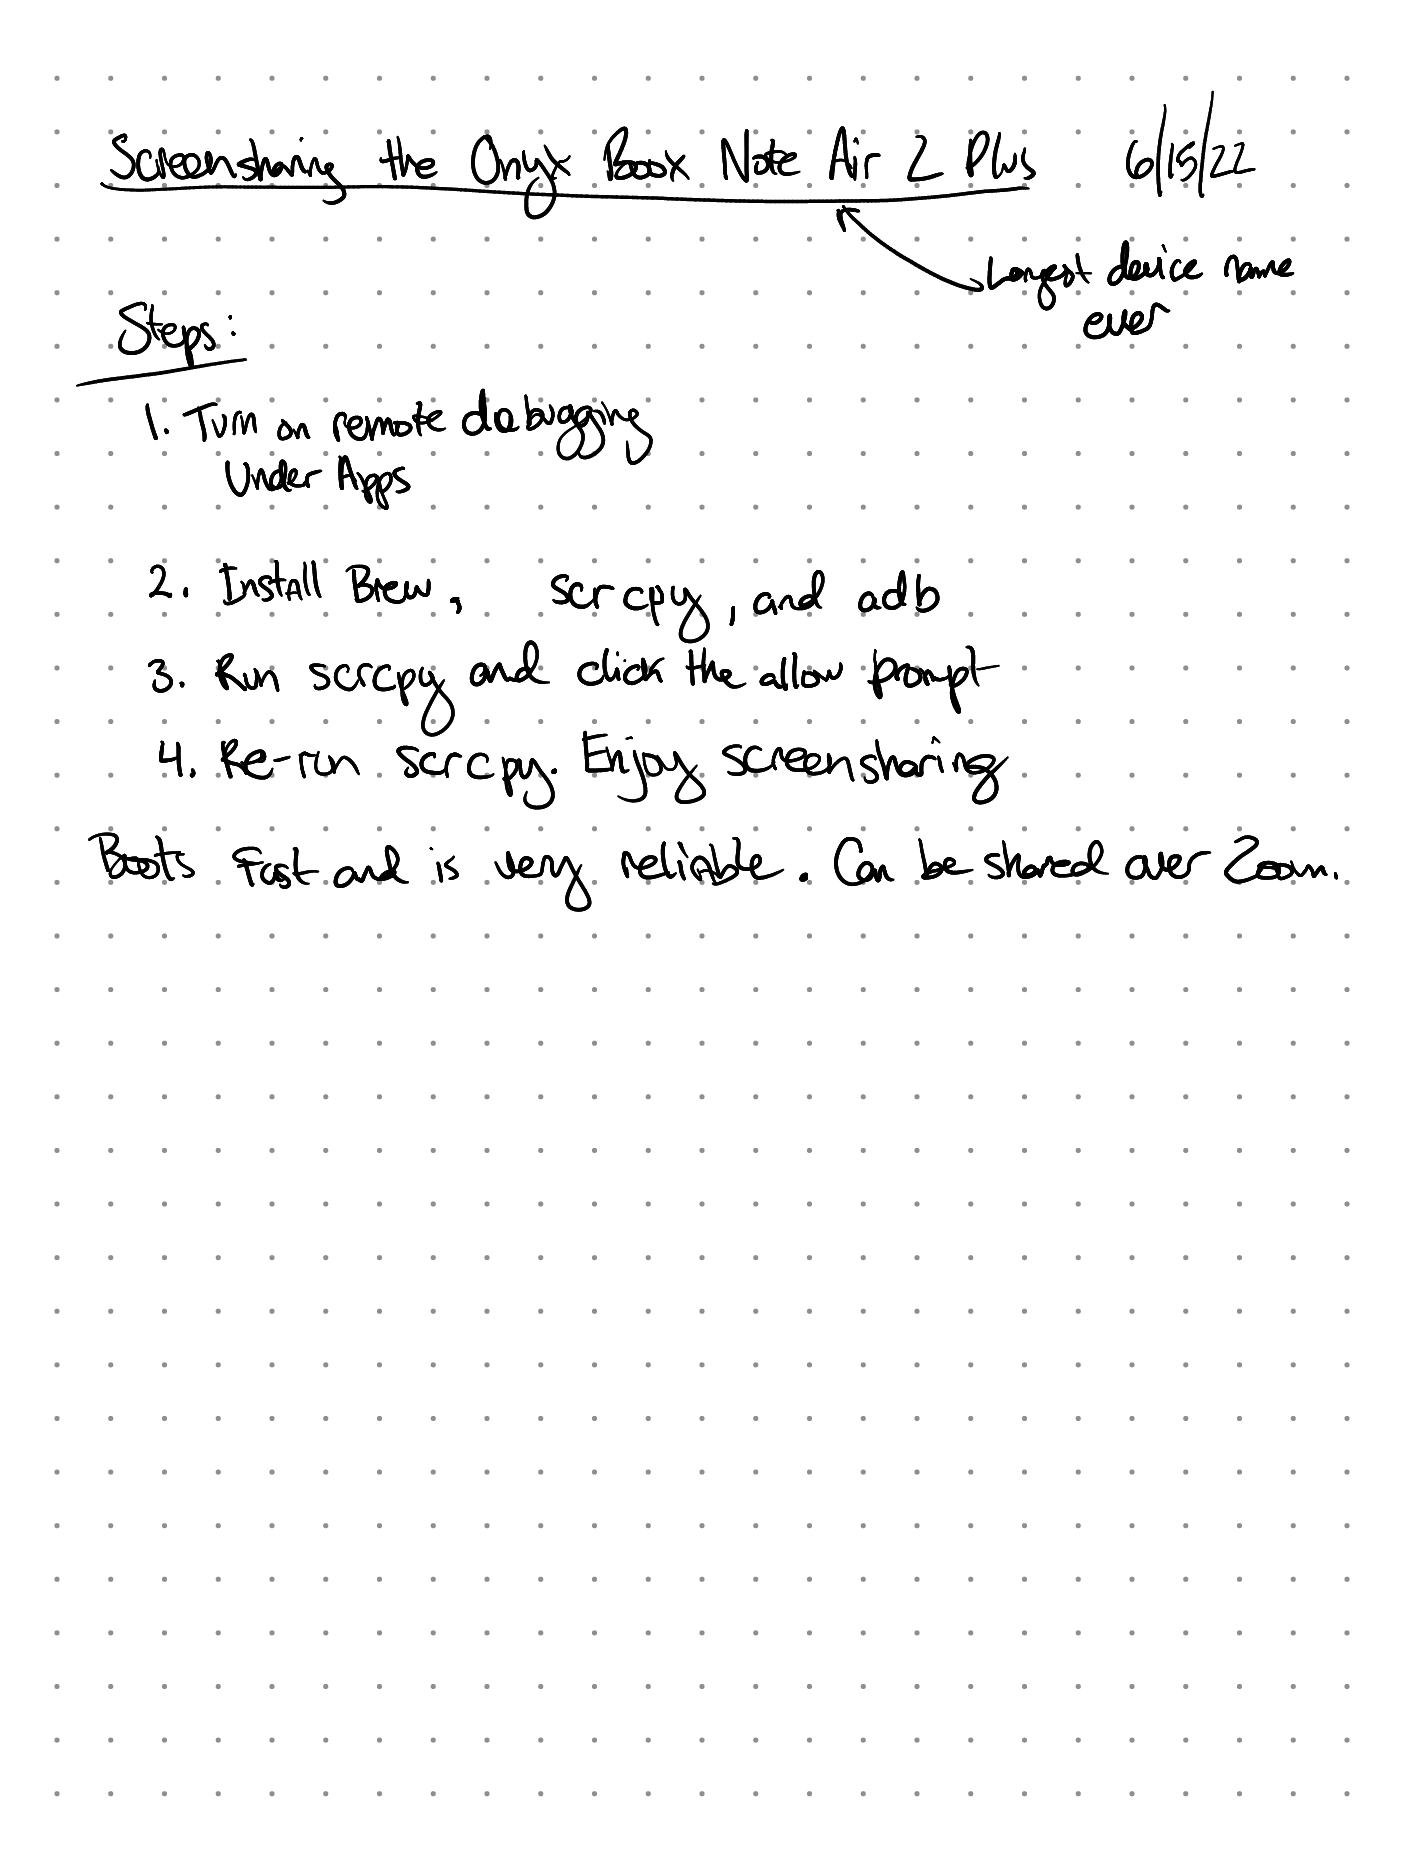 Screensharing the Onyx Boox Note Air 2 Plus 6/15/22
Longest device name
ever
Steps:
1. Turn on remote debugging
Under Apps
2. Install Brew, scrcpy, and adb
3. Run scrcpy and click the allow prompt
4. Re-run scrcpy. Enjoy screensharing
Boots fast and is very reliable. Can be shared over Zoom.